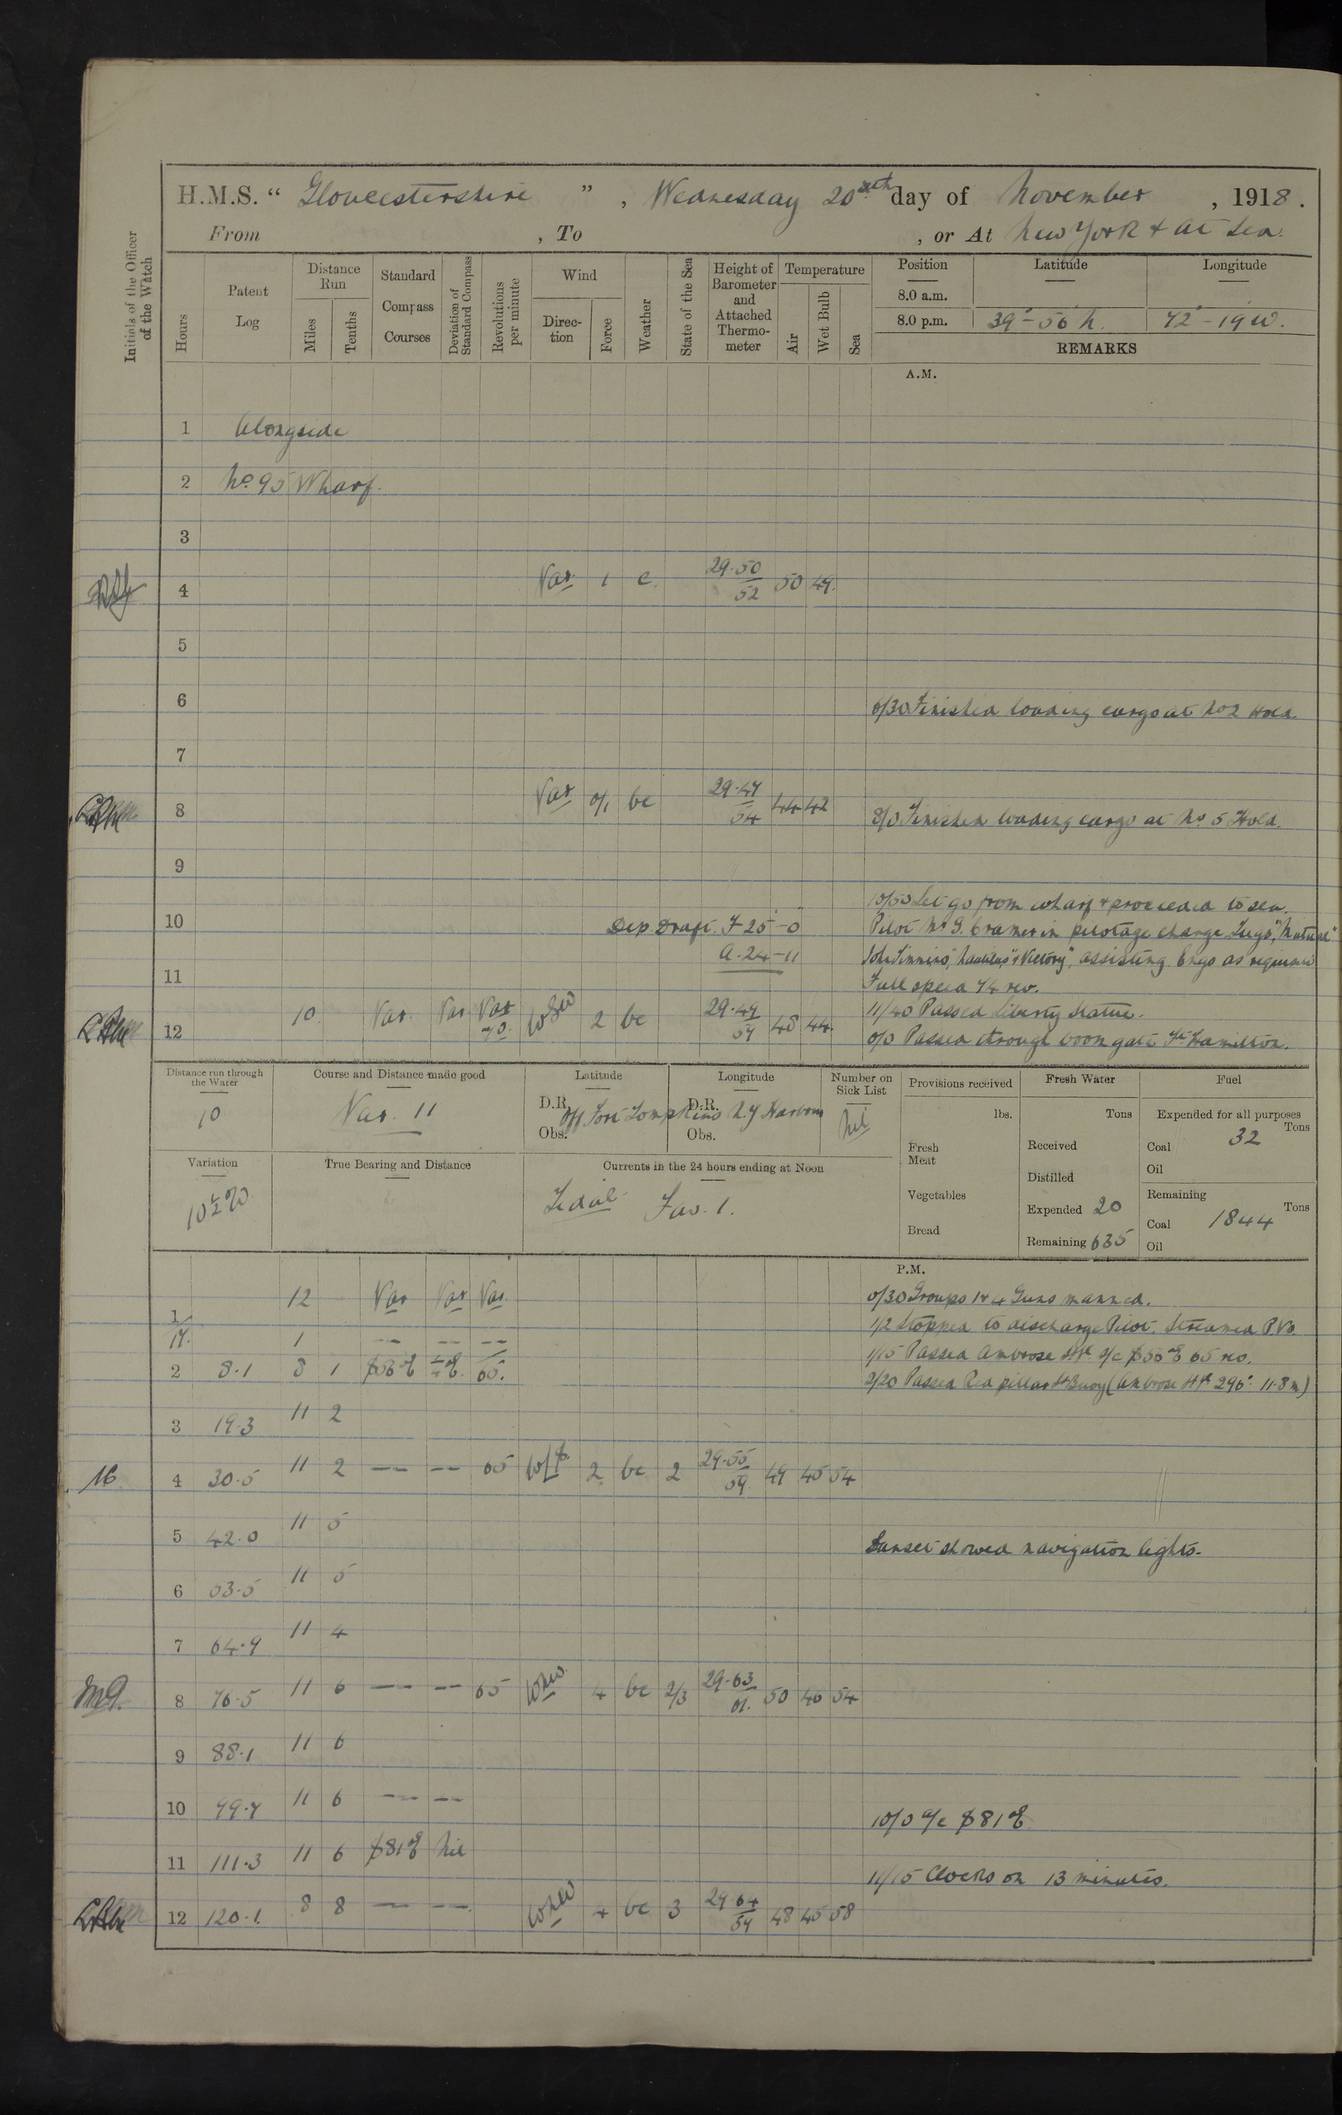 H.M.S. " Gloucestershire " , Wednesday 20th day of November , 1918 .
From , To , or At New York & at Sea.
Initials of the Officer of the Watch
Hours
Patent Log
Distance Run
Miles
Tenths
Standard Compass Courses
Deviation of Standard Compass
Revolutions per minute
Wind
Direc-tion
Force
Weather
State of the Sea
Height of Barometer and Attached Thermo-meter
Temperature
Air
Wet Bulb
Sea
Position
Latitude
Longitude
8.0 a.m.
8.0 p.m. 39°-56 N. 72°-19 W.
REMARKS
A.M.
1 Alongside
2 No. 95 Wharf.
3
4 Var 1 c. 29.50 52 50 49.
5
6 6/30 Finished loading cargo at No 2 Hold
7
8 Var 0/1 bc 29.47 54 44 42 8/0 Finished loading cargo at No 5 Hold.
9
10/50 Let go from wharf & proceeded to sea.
10 Dep Draft. F 25'-0" Pilot Mr G. Cramer in pilotage charge Tugs,
A. 24-11 "Victory", assisting Engs as required
11 Full speed 74 rev.
10 Var. Var Var 70. WSW 2 bc 29.49 59 48 44 11/40 Passed Liberty Statue.
12 0/0 Passed through boom gate Ft Hamilton.
Distance run through the Water
10
Course and Distance made good
Var. 11
Latitude
Longitude
D.R. Off Fort Tompkins D.R. N.Y Harbour
Obs. Obs.
Number on Sick List
Nil
Provisions received
lbs.
Fresh Meat
Vegetables
Bread
Fresh Water
Tons
Received
Distilled
Expended 20
Remaining 635
Fuel
Expended for all purposes
Tons
Coal 32
Oil
Remaining
Tons
Coal 1844
Oil
Variation
10½ W
True Bearing and Distance
Currents in the 24 hours ending at Noon
Tidal Fav. 1.
P.M.
1 12 Var Var Var. 0/30 Groups 1 & 4 Guns manned.
1/2 Stopped to discharge Pilot. Streamed P.Vs.
17. 1 -- -- -- 1/15 Passed Ambrose
2 8.1 8 1 65. 2/20 Passed Red pillar Lt Buoy (Ambrose 296° 11.8 m)
3 19.3 11 2
4 30.5 11 2 -- -- 65 2 bc 2 29.55 59 49 45 54
5 42.0 11 5 Sunset showed navigation lights.
6 53.5 11 5
7 64.9 11 4
8 76.5 11 6 -- -- 65 WNW. 4 bc 2/3 29.63 61. 50 46 54
9 88.1 11 6
10 99.7 11 6 -- -- 10/0 A/c S81°E
11 111.3 11 6 S81°E Nil 11/15 Clocks on 13 minutes.
12 120.1. 8 8 -- -- WNW 4 bc 3 29.64 59 48 45 58